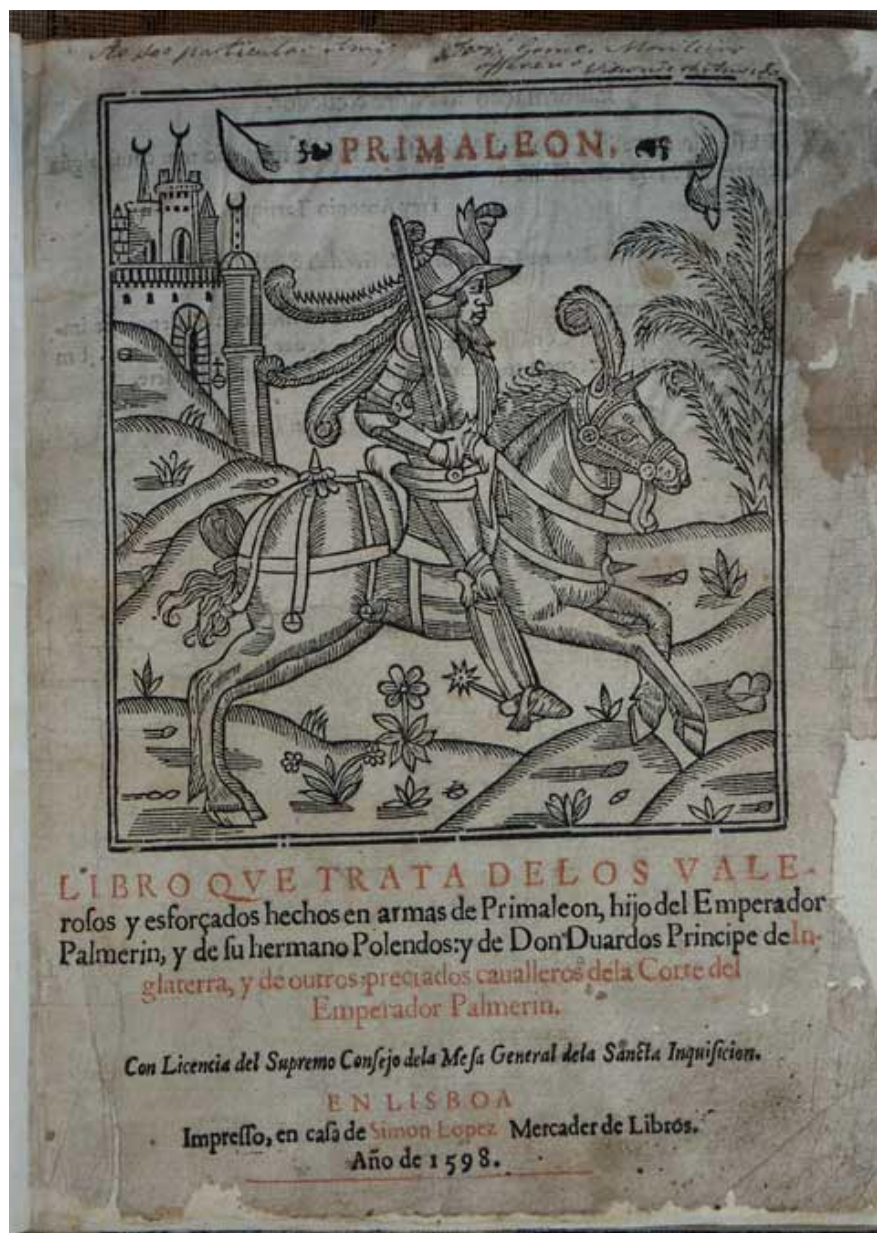 Gome. Monteiro
PRIMALEON.
LIBRO QVE TRATA DELOS VALE-
roſos y esforçados hechos en armas de Primaleon, hijo del Emperador
Palmerin, y de ſu hermano Polendos: y de Don Duardos Principe de In-
glaterra, y de outros preciados caualleros dela Corte del
Emperador Palmerin.
Con Licencia del Supremo Conſejo dela Meſa General dela Sancta Inquiſicion.
EN LISBOA
Impreſſo, en caſa de Simon Lopez Mercader de Libros.
Año de 1598.